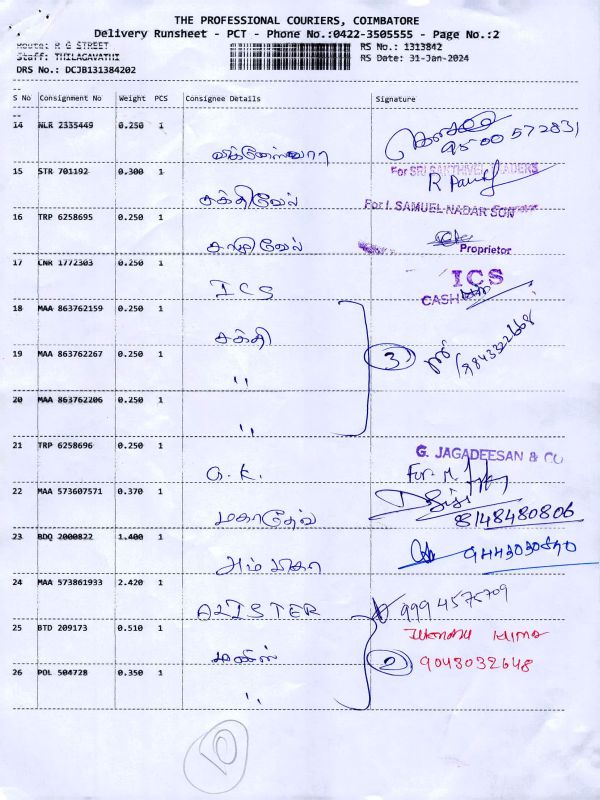 THE PROFESSIONAL COURIERS, COIMBATORE
Delivery Runsheet - PCT - Phone No.:0422-3505555 - Page No.:2
Route: R G STREET RS No.: 1313842
Staff: THILAGAVATHI RS Date: 31-Jan-2024
DRS No.: DCJB131384202
S No Consignment No Weight PCS Consignee Details Signature
14 NLR 2335449 0.250 1
95-00 572831
15 STR 701192 0.300 1 For SRI SAKTHIVEL TRADERS
சக்திவேல்
16 TRP 6258695 0.250 1 For I. SAMUEL NADAR SON
Proprietor
17 CNR 1772303 0.250 1 ICS
ICS CASH
18 MAA 863762159 0.250 1
சக்தி
19 MAA 863762267 0.250 1 3
"
20 MAA 863762206 0.250 1
"
21 TRP 6258696 0.250 1 G. JAGADEESAN & CO
G.K. For
22 MAA 573607571 0.370 1
மகாதேவ் 8148480806
23 BDQ 2000822 1.400 1
24 MAA 573861933 2.420 1
9994575709
25 BTD 209173 0.510 1
2 9043032648
26 POL 504728 0.350 1
"
10